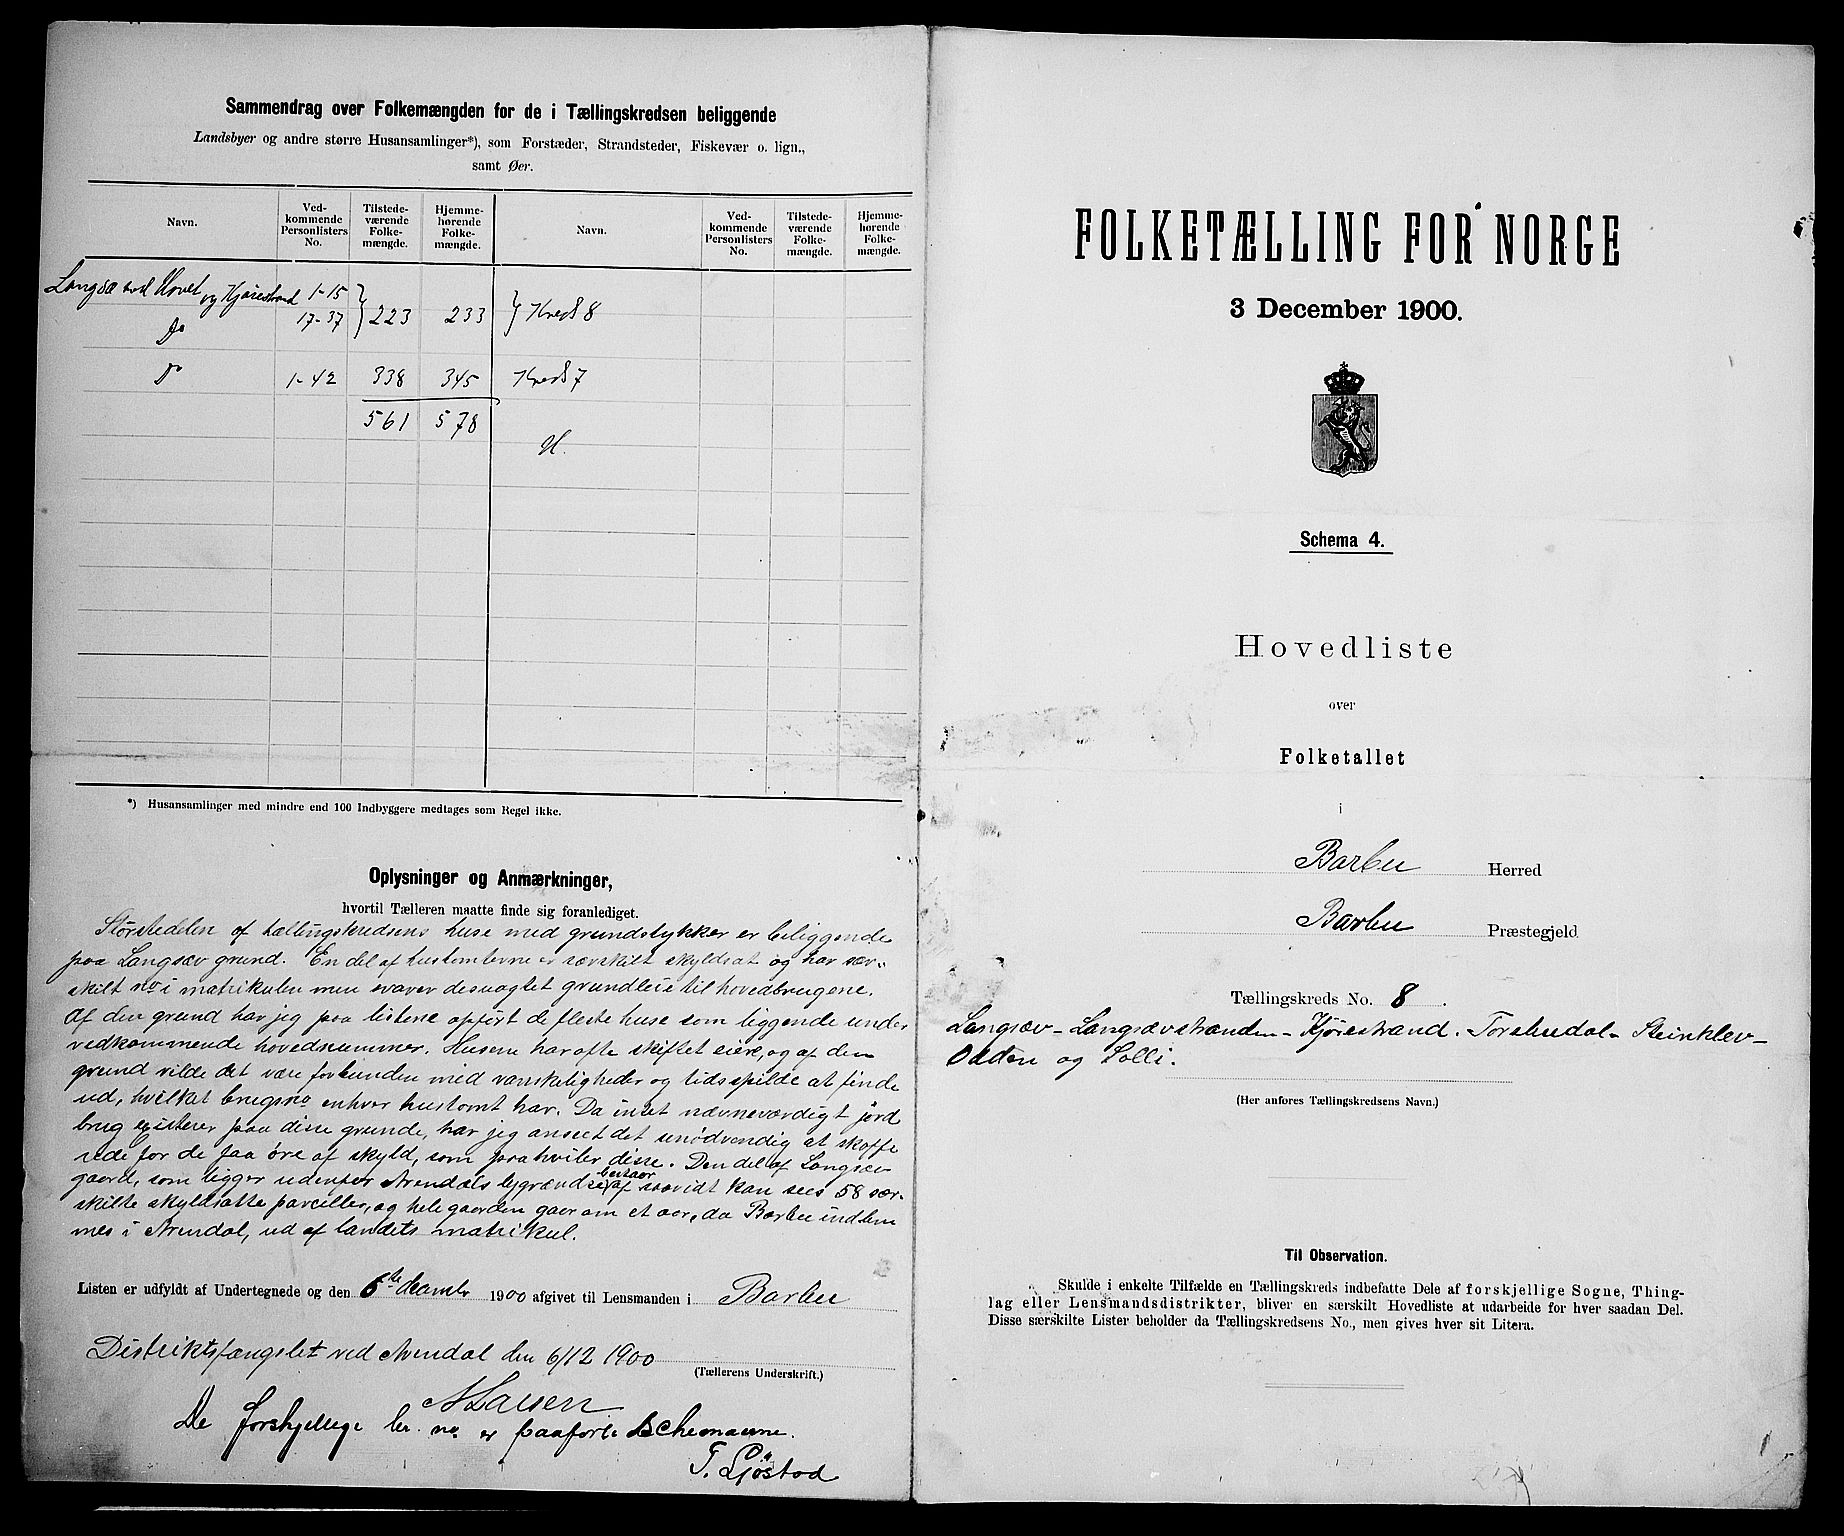 Sammendrag over Folkemængden for de i Tællingskredsen beliggende
Landsbyer og andre større Husansamlinger*), som Forstæder, Strandsteder, Fiskevær o. lign.,
samt Øer.
Navn. Ved-kommende Personlisters No. Tilstede-værende Folke-mængde. Hjemme-hørende Folke-mængde. Navn. Ved-kommende Personlisters No. Tilstede-værende Folke-mængde. Hjemme-hørende Folke-mængde.
Langsæ og Kjørestrand 1-15
Do 17-37 } 223 233 } Kreds 8
Do 1-42 338 345 Kreds 7
561 578
*) Husansamlinger med mindre end 100 Indbyggere medtages som Regel ikke.
Oplysninger og Anmærkninger,
hvortil Tælleren maatte finde sig foranlediget.
Størstedelen af tællingskredsens huse med grundstykker er beliggende
paa Langsæv grund. En del af hustomterne er særskilt skyldsat og har sær-
skilt no i matrikulen men svarer desuagtet grundleie til hovedbrugene.
Af den grund har jeg paa listene opført de fleste huse som liggende under
vedkommende hovednummer. Husene har ofte skiftet eiere, og af den
grund vilde det være forbunden med vanskeligheder og tidsspilde at finde
ud, hvilket brugsno enhver hustomt har. Da intet nævneværdigt jord
brug existerer paa disse grunde, har jeg anseet det unødvendig at skaffe
rede for de faa øre af skyld, som paahviler disse. Den del af Langsæv
gaard, som ligger udenfor Arendals bygrændse, bestaar af saavidt kan sees 58 sær-
skilte skyldsatte parceller, og hele gaarden gaar om et aar, da Barbu indlem
mes i Arendal, ud af landets matrikul.
Listen er udfyldt af Undertegnede og den 6te decembr 1900 afgivet til Lensmanden i Barbu
Distriktsfængslet ved Arendal den 6/12 1900
(Tællerens Underskrift.)
De forskjellige br. no. er paaført schemaerne.
FOLKETÆLLING FOR NORGE
3 December 1900.
Schema 4.
Hovedliste
over
Folketallet
i
Barbu Herred
Barbu Præstegjeld
Tællingskreds No. 8.
Langsæv - Langsævstranden - Kjørestrand. Torsbudal - Steinklev -
Odden og Solli.
(Her anføres Tællingskredsens Navn.)
Til Observation.
Skulde i enkelte Tilfælde en Tællingskreds indbefatte Dele af forskjellige Sogne, Thing-
lag eller Lensmandsdistrikter, bliver en særskilt Hovedliste at udarbeide for hver saadan Del.
Disse særskilte Lister beholder da Tællingskredsens No., men gives hver sit Litera.